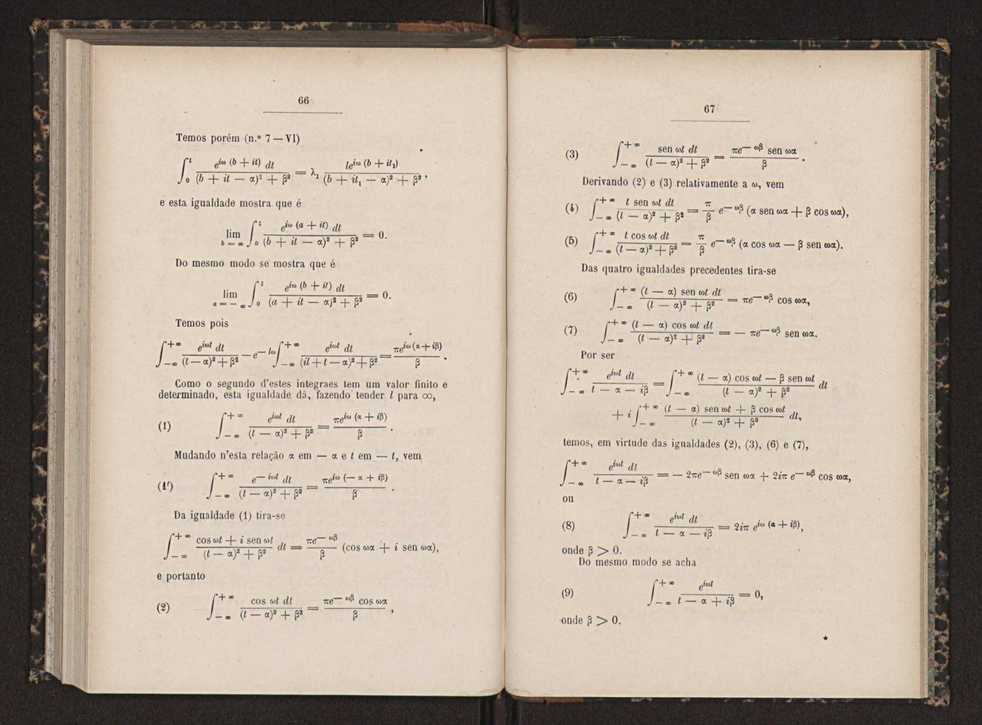 66
Temos porém (n.º 7 — VI)
∫₀ˡ e^{iω (b + it)} dt / ((b + it — α)² + β²) = λ₁ le^{iω (b + it₁)} / ((b + it₁ — α)² + β²) ,
e esta igualdade mostra que é
lim_{b = ∞} ∫₀ˡ e^{iω (a + it)} dt / ((b + it — α)² + β²) = 0.
Do mesmo modo se mostra que é
lim_{a = — ∞} ∫₀ˡ e^{iω (b + it)} dt / ((a + it — α)² + β²) = 0.
Temos pois
∫_{—∞}^{+∞} e^{iωt} dt / ((t — α)² + β²) — e^{— lω} ∫_{—∞}^{+∞} e^{iωt} dt / ((il + t — α)² + β²) = πe^{iω (α + iβ)} / β .
Como o segundo d'estes integraes tem um valor finito e
determinado, esta igualdade dá, fazendo tender l para ∞,
(1) ∫_{— ∞}^{+ ∞} e^{iωt} dt / ((t — α)² + β²) = πe^{iω (α + iβ)} / β .
Mudando n'esta relação α em — α e t em — t, vem
(1') ∫_{— ∞}^{+ ∞} e^{— iωt} dt / ((t — α)² + β²) = πe^{iω (— α + iβ)} / β .
Da igualdade (1) tira-se
∫_{— ∞}^{+ ∞} (cos ωt + i sen ωt) / ((t — α)² + β²) dt = πe^{— ωβ} / β (cos ωα + i sen ωα),
e portanto
(2) ∫_{— ∞}^{+ ∞} cos ωt dt / ((t — α)² + β²) = πe^{— ωβ} cos ωα / β ,
67
(3) ∫_{— ∞}^{+ ∞} sen ωt dt / ((t — α)² + β²) = πe^{— ωβ} sen ωα / β .
Derivando (2) e (3) relativamente a ω, vem
(4) ∫_{— ∞}^{+ ∞} t sen ωt dt / ((t — α)² + β²) = π / β e^{— ωβ} (α sen ωα + β cos ωα),
(5) ∫_{— ∞}^{+ ∞} t cos ωt dt / ((t — α)² + β²) = π / β e^{— ωβ} (α cos ωα — β sen ωα).
Das quatro igualdades precedentes tira-se
(6) ∫_{— ∞}^{+ ∞} (t — α) sen ωt dt / ((t — α)² + β²) = πe^{— ωβ} cos ωα,
(7) ∫_{— ∞}^{+ ∞} (t — α) cos ωt dt / ((t — α)² + β²) = — πe^{— ωβ} sen ωα.
Por ser
∫_{— ∞}^{+ ∞} e^{iωt} dt / (t — α — iβ) = ∫_{— ∞}^{+ ∞} ((t — α) cos ωt — β sen ωt) / ((t — α)² + β²) dt
+ i ∫_{— ∞}^{+ ∞} ((t — α) sen ωt + β cos ωt) / ((t — α)² + β²) dt,
temos, em virtude das igualdades (2), (3), (6) e (7),
∫_{— ∞}^{+ ∞} e^{iωt} dt / (t — α — iβ) = — 2πe^{— ωβ} sen ωα + 2iπ e^{— ωβ} cos ωα,
ou
(8) ∫_{— ∞}^{+ ∞} e^{iωt} dt / (t — α — iβ) = 2iπ e^{iω (α + iβ)},
onde β > 0.
Do mesmo modo se acha
(9) ∫_{— ∞}^{+ ∞} e^{iωt} / (t — α + iβ) = 0,
onde β > 0.
*